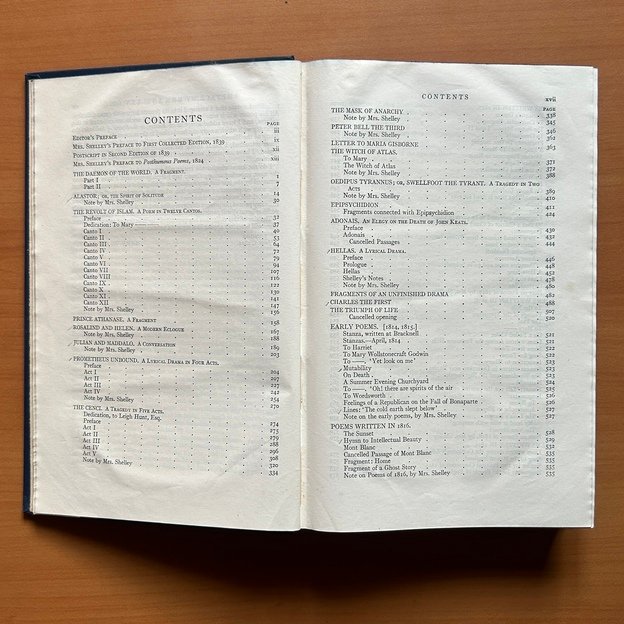 CONTENTS
PAGE
EDITOR'S PREFACE iii
MRS. SHELLEY'S PREFACE TO FIRST COLLECTED EDITION, 1839 ix
POSTSCRIPT IN SECOND EDITION OF 1839 xii
MRS. SHELLEY'S PREFACE TO Posthumous Poems, 1824 xiii
THE DAEMON OF THE WORLD. A FRAGMENT.
Part I 1
Part II 7
ALASTOR; OR, THE SPIRIT OF SOLITUDE 14
Note by Mrs. Shelley 30
THE REVOLT OF ISLAM. A POEM IN TWELVE CANTOS.
Preface 32
Dedication: To Mary 37
Canto I 40
Canto II 53
Canto III 64
Canto IV 72
Canto V 79
Canto VI 94
Canto VII 107
Canto VIII 116
Canto IX 122
Canto X 130
Canto XI 141
Canto XII 147
Note by Mrs. Shelley 156
PRINCE ATHANASE. A FRAGMENT 158
ROSALIND AND HELEN. A MODERN ECLOGUE 167
Note by Mrs. Shelley 188
JULIAN AND MADDALO. A CONVERSATION 189
Note by Mrs. Shelley 203
PROMETHEUS UNBOUND. A LYRICAL DRAMA IN FOUR ACTS.
Preface 204
Act I 207
Act II 227
Act III 242
Act IV 254
Note by Mrs. Shelley 270
THE CENCI. A TRAGEDY IN FIVE ACTS.
Dedication, to Leigh Hunt, Esq. 274
Preface 275
Act I 279
Act II 288
Act III 296
Act IV 308
Act V 320
Note by Mrs. Shelley 334
CONTENTS xvii
PAGE
THE MASK OF ANARCHY 338
Note by Mrs. Shelley 345
PETER BELL THE THIRD 346
Note by Mrs. Shelley 362
LETTER TO MARIA GISBORNE 363
THE WITCH OF ATLAS.
To Mary 371
The Witch of Atlas 372
Note by Mrs. Shelley 388
OEDIPUS TYRANNUS; OR, SWELLFOOT THE TYRANT. A TRAGEDY IN TWO
ACTS 389
Note by Mrs. Shelley 410
EPIPSYCHIDION 411
Fragments connected with Epipsychidion 424
ADONAIS. AN ELEGY ON THE DEATH OF JOHN KEATS.
Preface 430
Adonais 432
Cancelled Passages 444
HELLAS. A LYRICAL DRAMA.
Preface 446
Prologue 448
Hellas 452
Shelley's Notes 478
Note by Mrs. Shelley 480
FRAGMENTS OF AN UNFINISHED DRAMA 482
CHARLES THE FIRST 488
THE TRIUMPH OF LIFE 507
Cancelled opening 520
EARLY POEMS. [1814, 1815.]
Stanza, written at Bracknell 521
Stanzas.—April, 1814 521
To Harriet
To Mary Wollstonecraft Godwin 522
To ——. 'Yet look on me'
Mutability 523
On Death 523
A Summer Evening Churchyard 524
To ——. 'Oh! there are spirits of the air'
To Wordsworth 526
Feelings of a Republican on the Fall of Bonaparte 526
Lines: 'The cold earth slept below'
Note on the early poems, by Mrs. Shelley 527
POEMS WRITTEN IN 1816.
The Sunset 528
Hymn to Intellectual Beauty 529
Mont Blanc 532
Cancelled Passage of Mont Blanc 535
Fragment: Home 535
Fragment of a Ghost Story 535
Note on Poems of 1816, by Mrs. Shelley 535